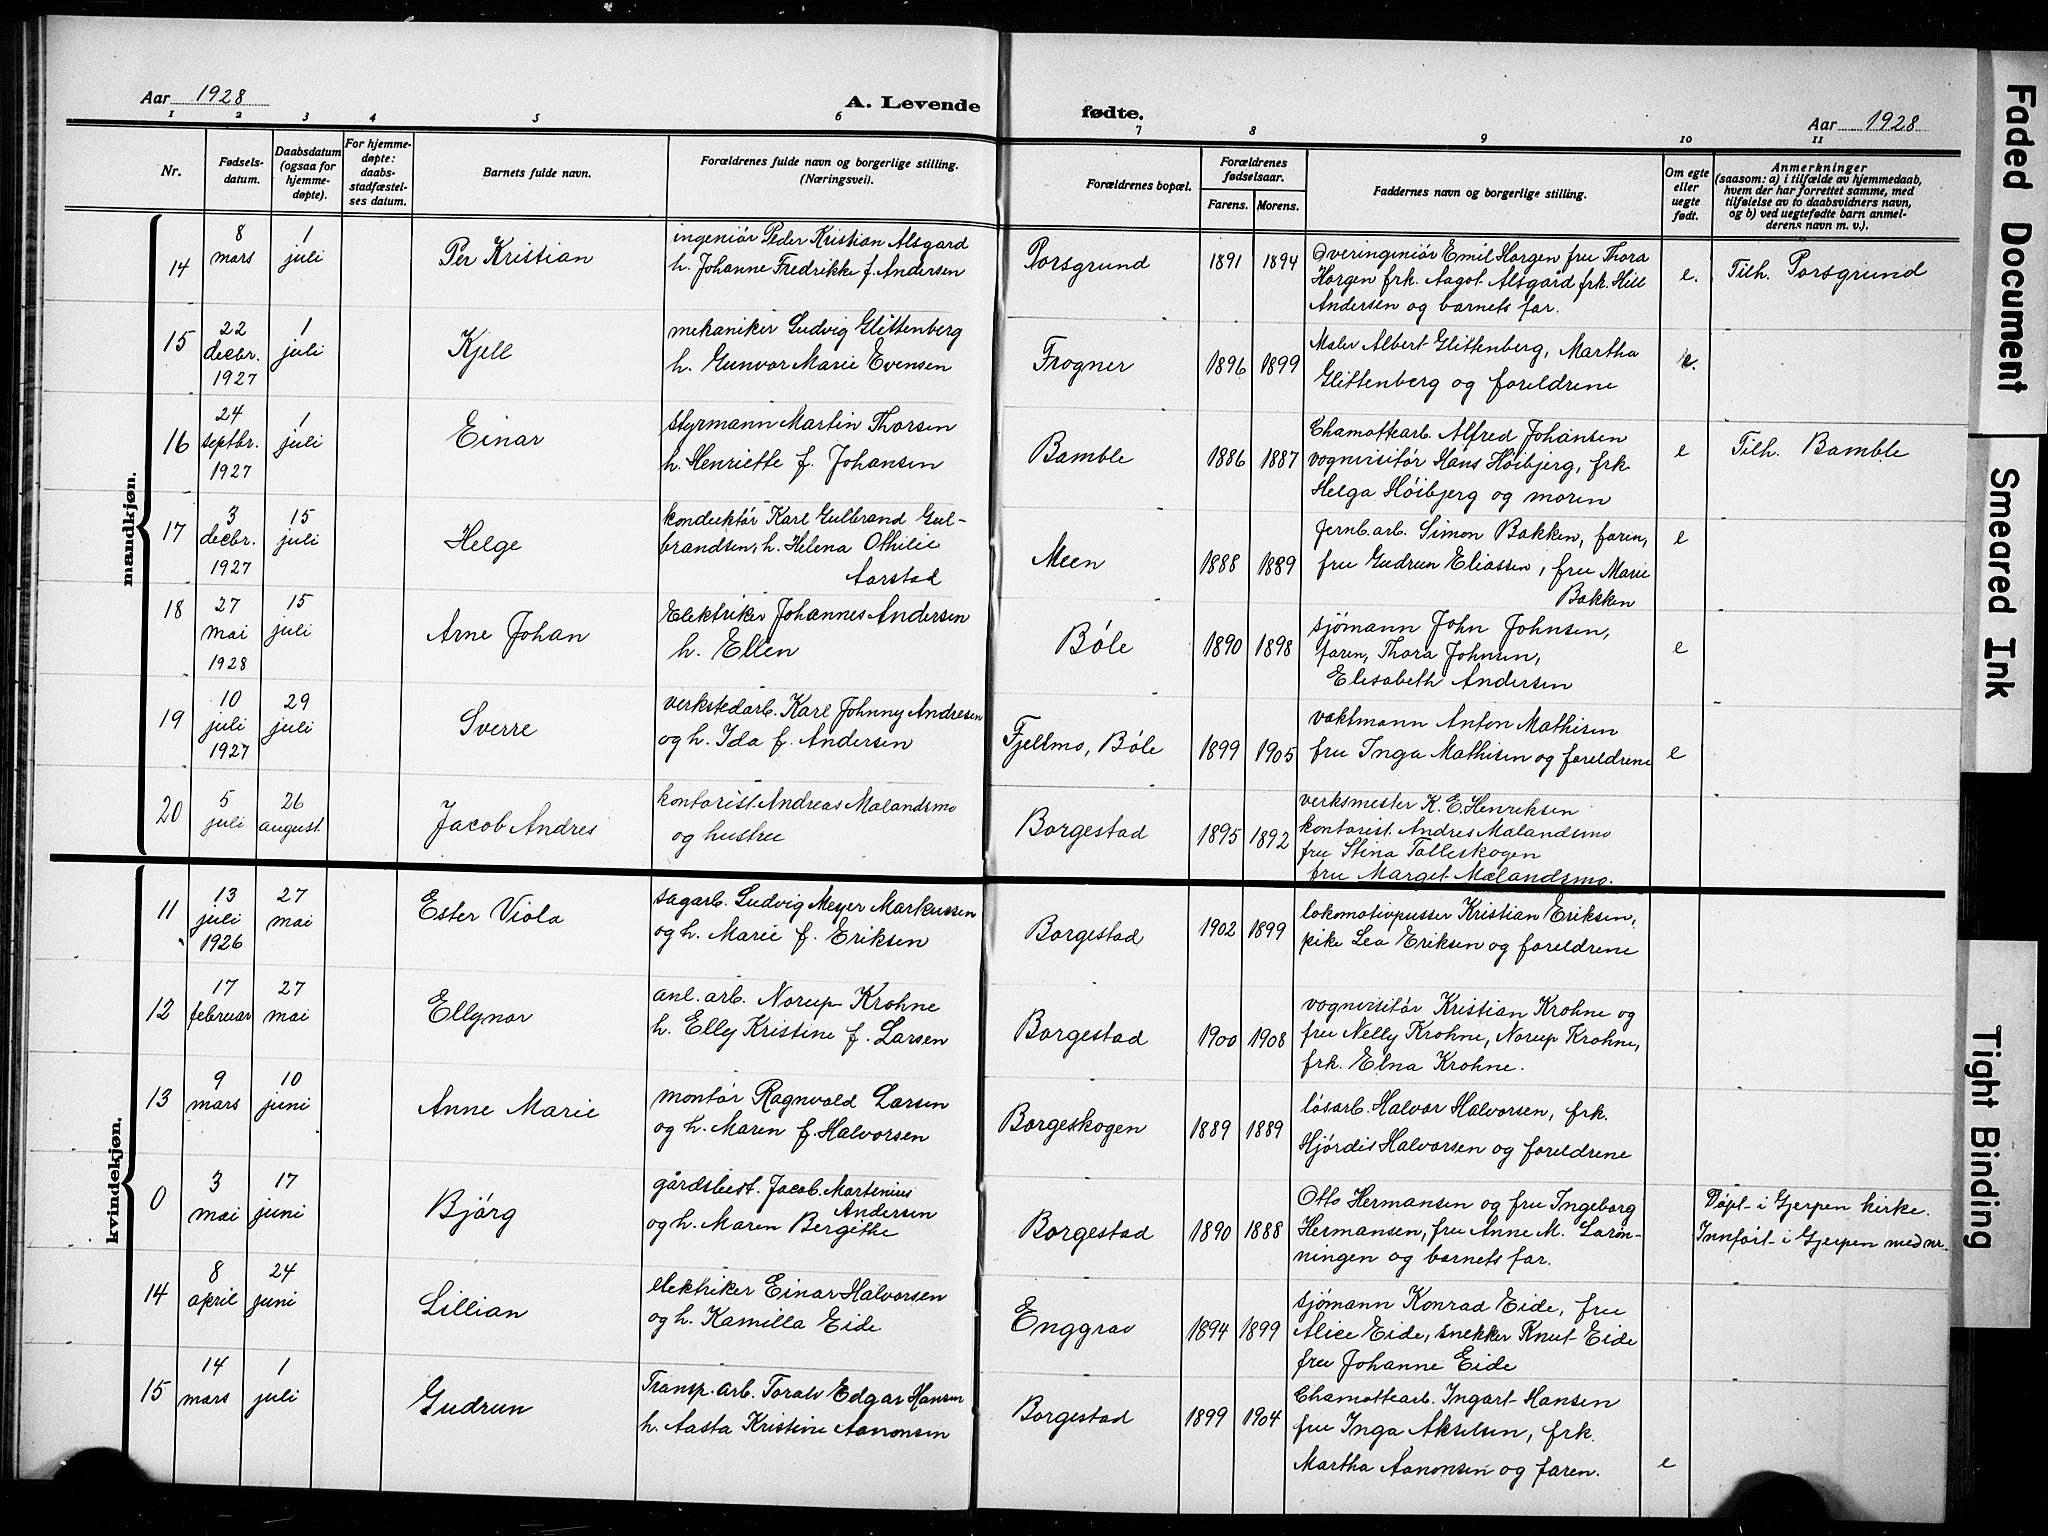 Aar 1928
A. Levende fødte.
Aar 1928
1 2 3 4 5 6 7 8 9 10 11
Nr.
Fødsels-
datum.
Daabsdatum
(ogsaa for
hjemme-
døpte).
For hjemme-
døpte:
daabs-
stadfæstel-
ses datum.
Barnets fulde navn.
Forældrenes fulde navn og borgerlige stilling.
(Næringsvei).
Forældrenes bopæl.
Forældrenes
fødselsaar.
Farens. Morens.
Faddernes navn og borgerlige stilling.
Om egte
eller
uegte
født.
Anmerkninger
(saasom: a) i tilfælde av hjemmedaab,
hvem der har forrettet samme, med
tilføielse av to daabsvidners navn,
og b) ved uegtefødte barn anmel-
derens navn m. v.).
mandkjøn.
14
8
mars
1
juli
Per Kristian
ingeniör Peder Kristian Alsgard
h. Johanne Fredrikke f. Andersen
Porsgrund
1891 1894
Overingeniör Emil Horgen fru Thora
Horgen frk. Aagot Alsgard frk. Hill
Andersen og barnets far.
e.
Tilh. Porsgrund
15
22
decbr.
1927
1
juli
Kjell
mekaniker Ludvig Glittenberg
h. Gunvor Marie Evensen
Frogner
1896 1899
Maler Albert Glittenberg, Martha
Glittenberg og foreldrene
e.
16
24
septbr.
1927
1
juli
Einar
styrmann Martin Thorsen
h. Henriette f. Johansen
Bamble
1886 1887
Chamottearb. Alfred Johansen
vognvisitör Hans Höibjerg, frk.
Helga Höibjerg og moren
e
Tilh. Bamble
17
3
decbr.
1927
15
juli
Helge
konduktör Karl Gulbrand Gul-
brandsen, h. Helena Othilie
Aarstad
Meen
1888 1889
Jernb.arb. Simon Bakken, faren,
fru Gudrun Eliassen, fru Marie
Bakken
e
18
27
mai
1928
15
juli
Arne Johan
Elektriker Johannes Andersen
h. Ellen
Böle
1890 1898
sjömann John Johnsen,
faren, Thora Johnsen,
Elisabeth Andersen
e
19
10
juli
1927
29
juli
Sverre
verkstedarb. Karl Johnny Andresen
og h. Ida f. Andersen
Fjellmo, Böle
1899 1905
vaktmann Anton Mathisen
fru Inga Mathisen og foreldrene
e
20
5
juli
26
august
Jacob Andres
kontorist Andreas Mælandsmo
og hustru
Borgestad
1895 1892
verksmester K. E. Henriksen
kontorist Andres Mælandsmo
fru Stina Tolleskogen
fru Margit Mælandsmo.
kvindekjøn.
11
13
juli
1926
27
mai
Ester Viola
sagarb. Ludvig Meyer Markussen
og h. Marie f. Eriksen
Borgestad
1902 1899
lokomotivpusser Kristian Eriksen,
pike Lea Eriksen og foreldrene
12
17
februar
27
mai
Ellynor
anl. arb. Norup Krohne
h. Elly Kristine f. Larsen
Borgestad
1900 1908
vognvisitör Kristian Krohne og
fru Nelly Krohne, Norup Krohne,
frk. Elna Krohne.
13
9
mars
10
juni
Anne Marie
montör Ragnvald Larsen
og h. Maren f. Halvorsen
Borgeskogen
1889 1889
lösarb. Halvor Halvorsen, frk.
Hjördis Halvorsen og foreldrene
0
3
mai
17
juni
Bjørg
gårdsbest. Jacob Martenius
Andersen
og h. Maren Bergithe
Borgestad
1890 1888
Otto Hermansen og fru Ingeborg
Hermansen, fru Anne M. Larön-
ningen og barnets far.
Döpt i Gjerpen kirke.
Innfört i Gjerpen med nr.
14
8
april
24
juni
Lillian
elektriker Einar Halvorsen
og h. Kamilla Eide
Enggrav
1894 1899
sjömann Konrad Eide, fru
Alice Eide, snekker Knut Eide
fru Johanne Eide
15
14
mars
1
juli
Gudrun
Transp. arb. Toralv Edgar Hansen
h. Aasta Kristine Aanonsen
Borgestad
1899 1904
Chamottearb. Ingart Hansen
fru Inga Akselsen, frk.
Martha Aanonsen og faren.
e
Faded Document
Smeared Ink
Tight Binding